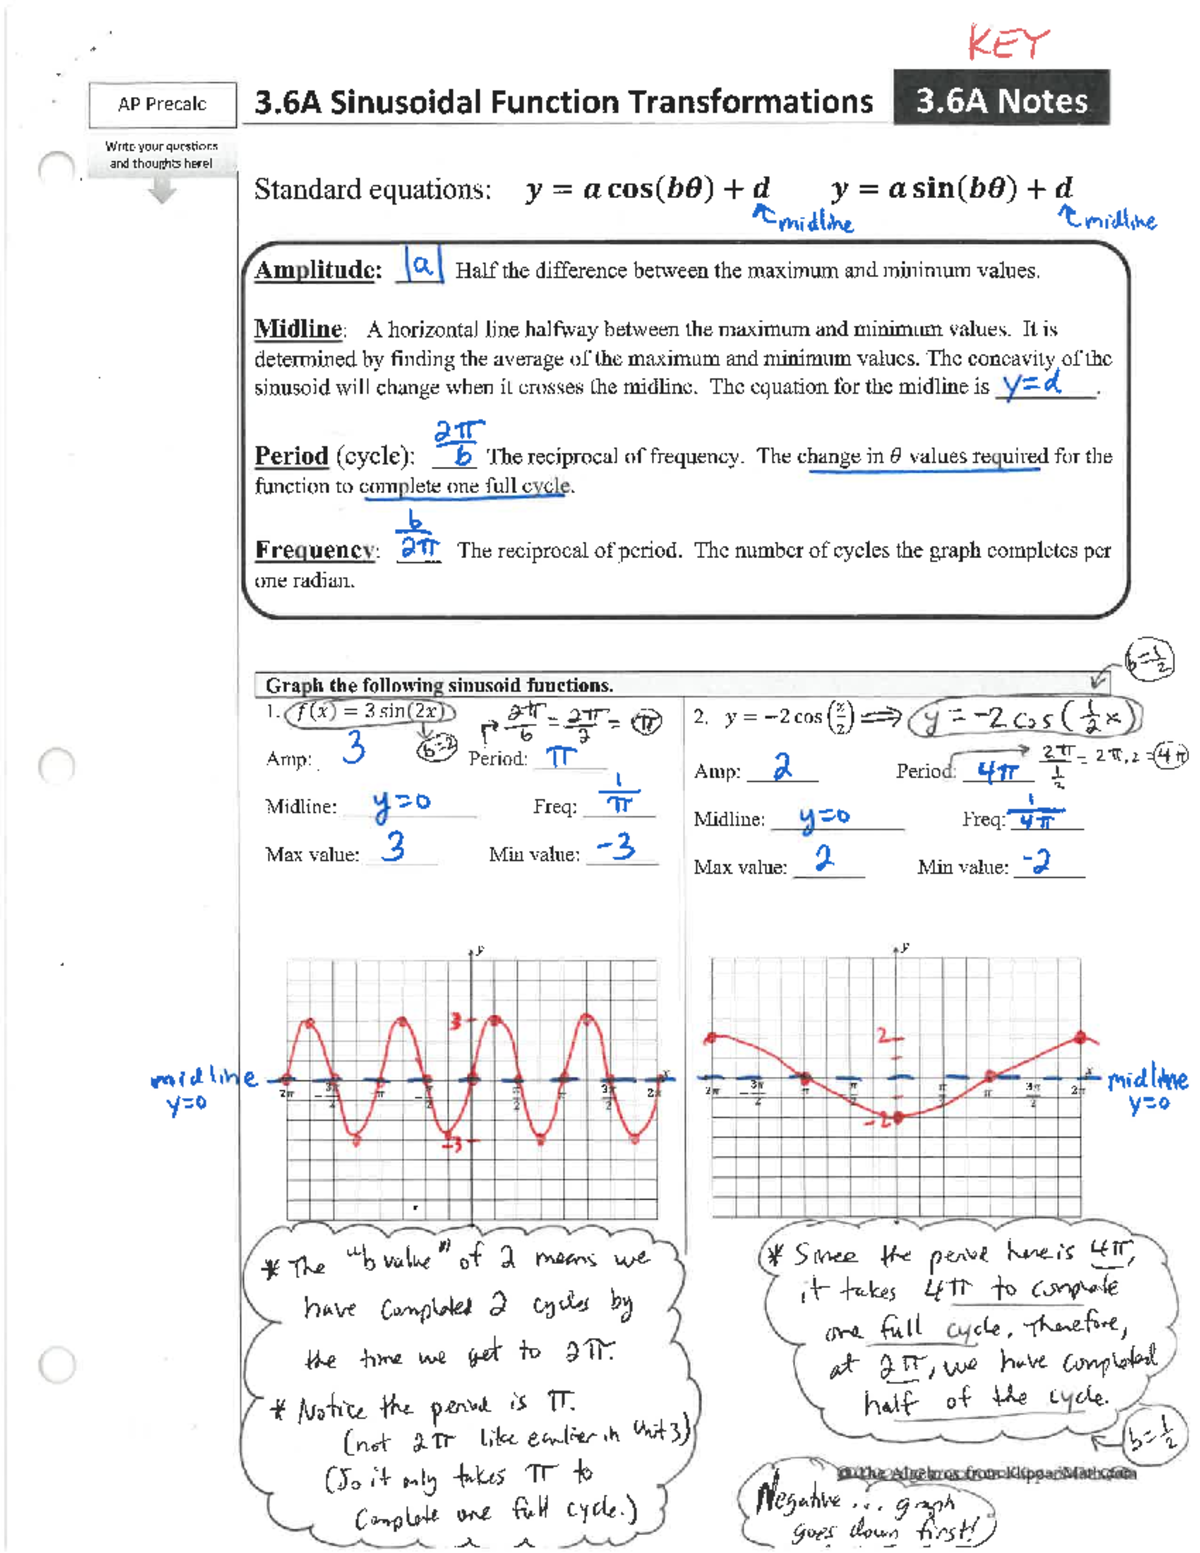 KEY
AP Precalc
3.6A Sinusoidal Function Transformations
3.6A Notes
Write your questions
and thoughts here!
Standard equations: y = a cos(bθ) + d y = a sin(bθ) + d
midline midline
Amplitude: |a| Half the difference between the maximum and minimum values.
Midline: A horizontal line halfway between the maximum and minimum values. It is
determined by finding the average of the maximum and minimum values. The concavity of the
sinusoid will change when it crosses the midline. The equation for the midline is y=d.
Period (cycle): 2π/b The reciprocal of frequency. The change in θ values required for the
function to complete one full cycle.
Frequency: b/2π The reciprocal of period. The number of cycles the graph completes per
one radian.
b=1/2
Graph the following sinusoid functions.
1. f(x) = 3 sin(2x) 2π/b = 2π/2 = π
b=2
Amp: 3 Period: π
Midline: y=0 Freq: 1/π
Max value: 3 Min value: -3
2. y = −2 cos(x/2) ⇒ y = -2 cos(1/2 x)
Amp: 2 Period: 4π 2π/(1/2) = 2π·2 = 4π
Midline: y=0 Freq: 1/4π
Max value: 2 Min value: -2
y
3
midline
y=0
2π −3π/2 π −π/2 π/2 π 3π/2 2π x
-3
y
2
midline
y=0
2π −3π/2 π π/2 π/2 π 3π/2 2π x
-2
* The "b value" of 2 means we
have completed 2 cycles by
the time we get to 2π.
* Notice the period is π.
(not 2π like earlier in Unit 3)
(So it only takes π to
complete one full cycle.)
* Since the period here is 4π,
it takes 4π to complete
one full cycle. Therefore,
at 2π, we have completed
half of the cycle.
b=1/2
Negative... graph
goes down first!